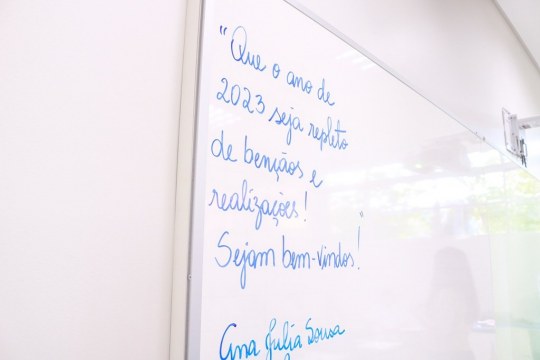 "Que o ano de
2023 seja repleto
de bençãos e
realizações!
Sejam bem-vindos!"
Ana Julia Sousa